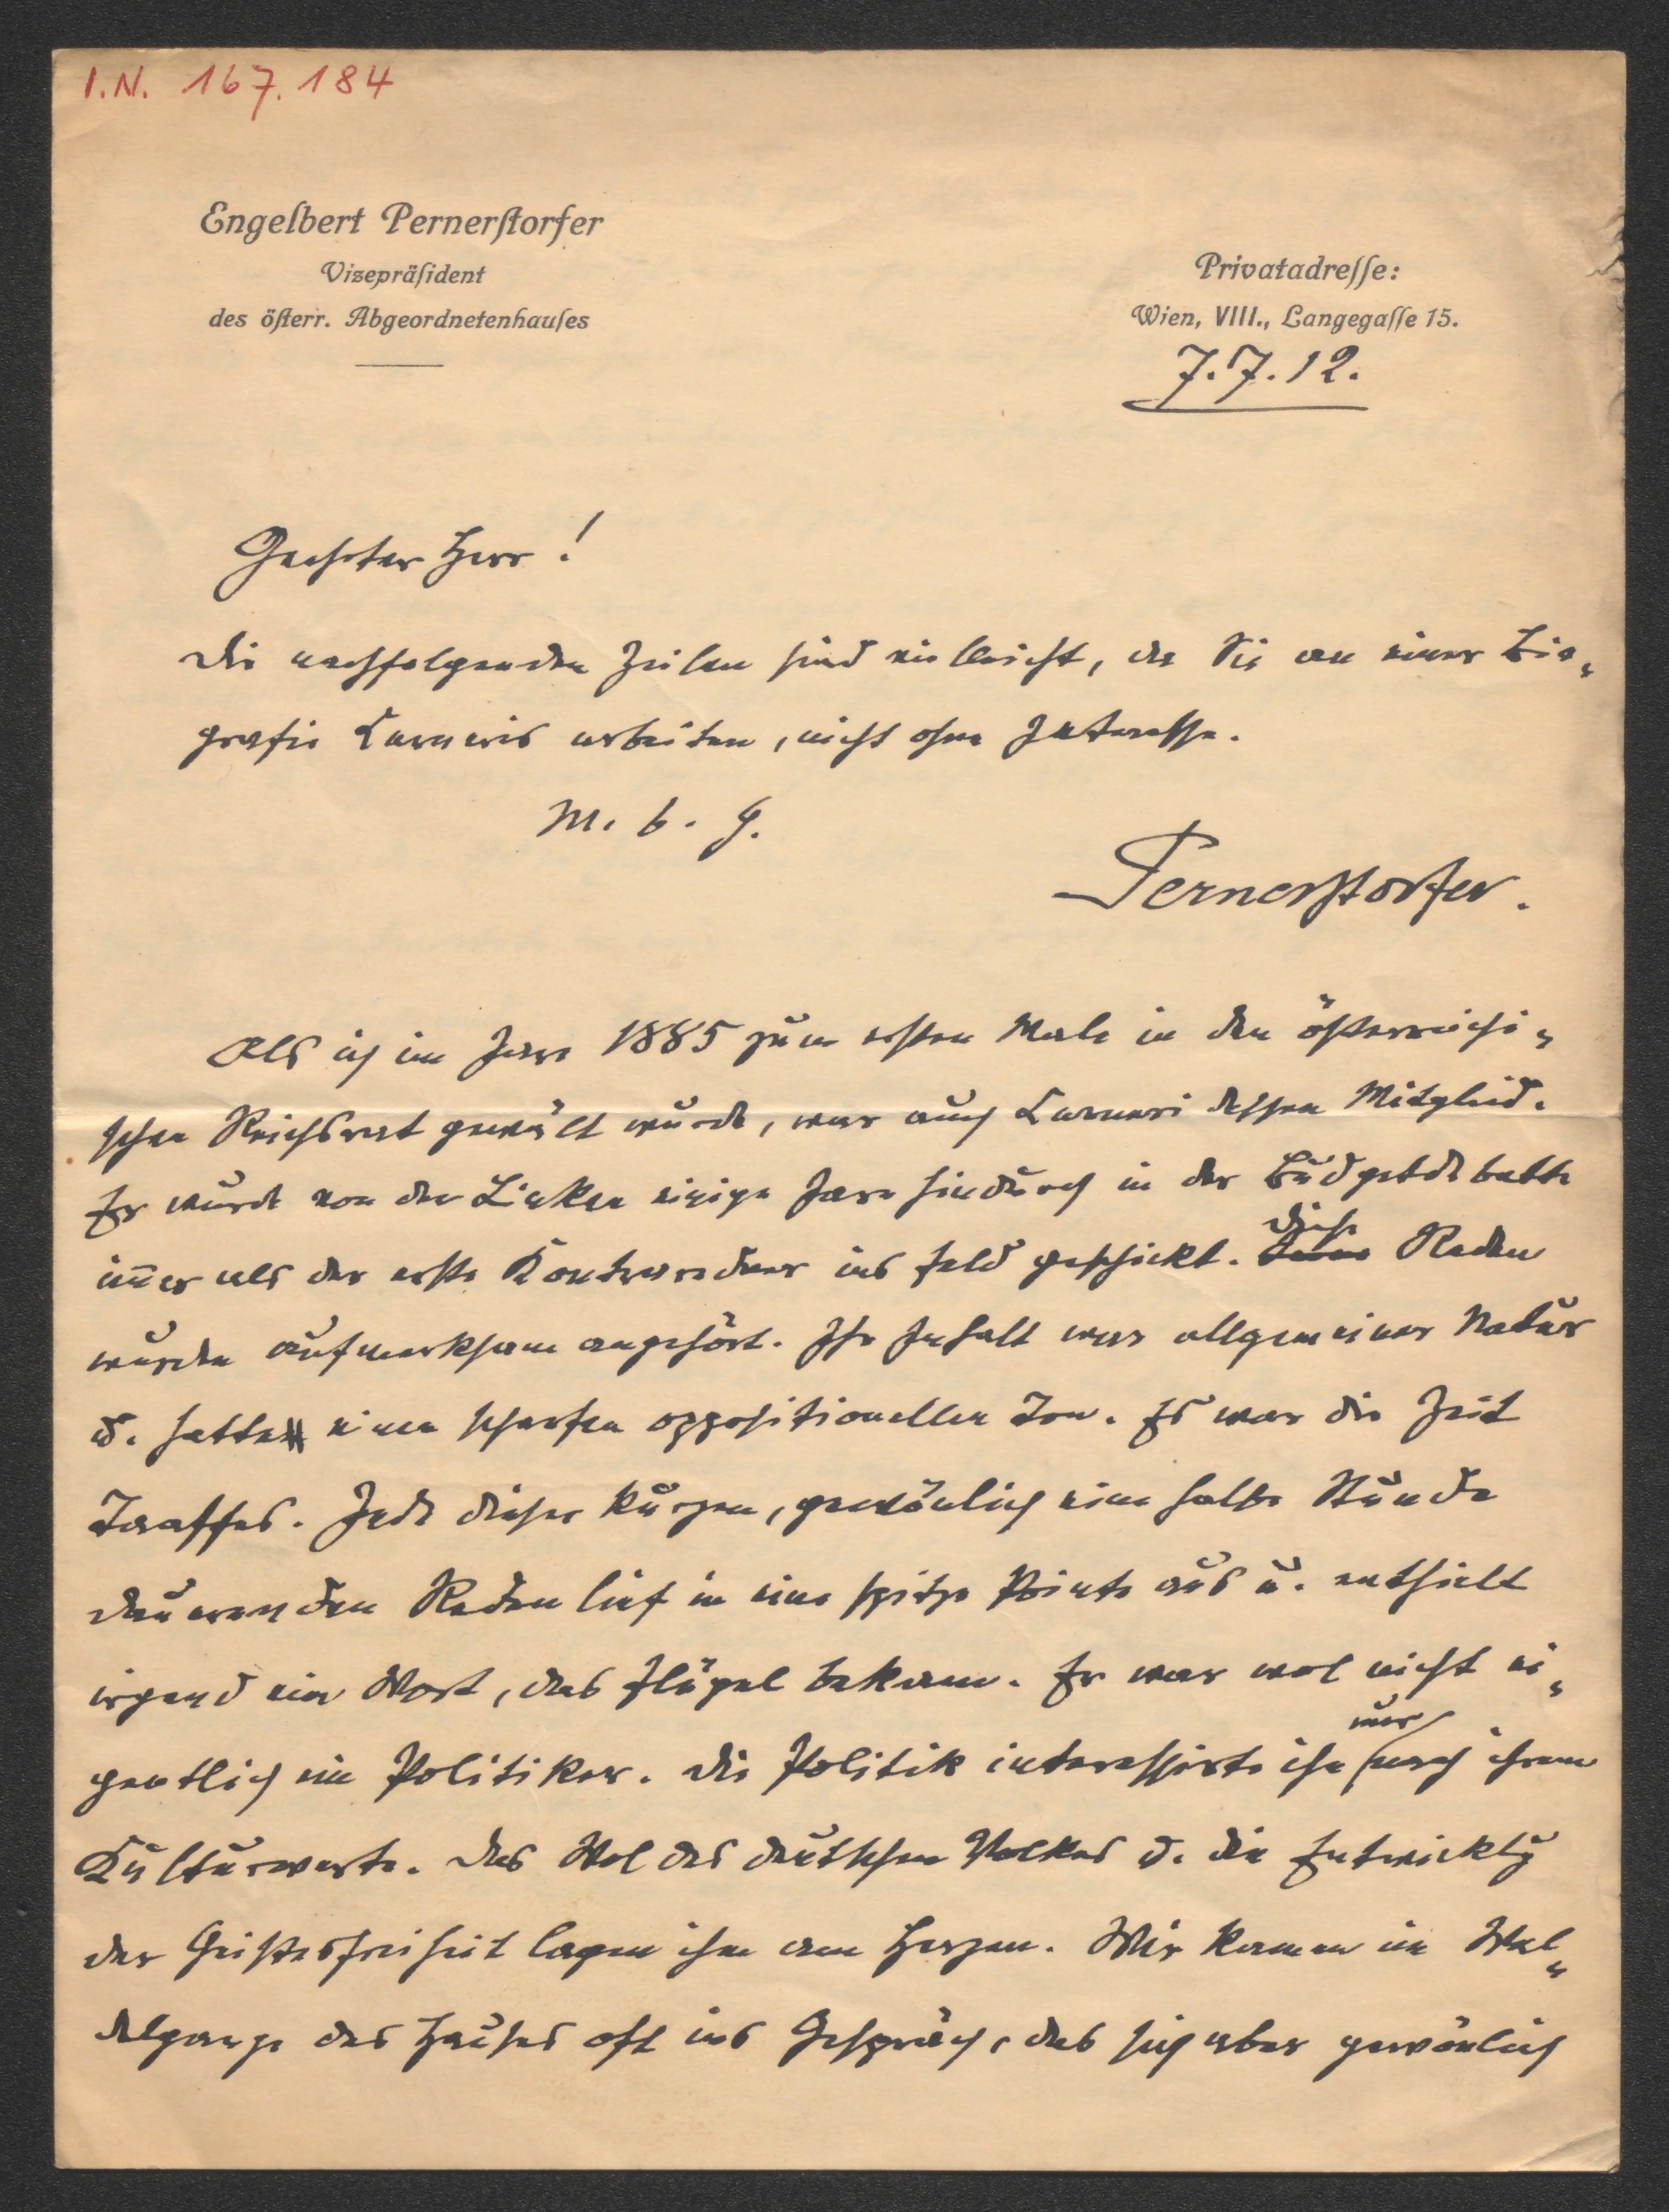 I.N. 167.184
Engelbert Pernerstorfer
Vizepräsident
des österr. Abgeordnetenhauses
Privatadresse:
Wien, VIII., Langegasse 15.
7.7.12.
Geehrter Herr!
die nachfolgenden Zeilen sind vielleicht, da Sie an einer Bio-
grafie Carneris arbeiten, nicht ohne Interesse.
M. b. G.
Pernerstorfer.
Als ich im Jare 1885 zum ersten Male in den österreichi-
schen Reichsrat gewält wurde, war auch Carneri dessen Mitglied.
Er wurde von der Linken einige Jare hindurch in der Budgetdebatte
immer als der erste Kontraredner ins Feld geschickt. Diese Reden
wurden aufmerksam angehört. Ihr Inhalt war allgemeiner Natur
u. hatte einen scharfen oppositionellen Ton. Es war die Zeit
Taaffes. Jede dieser kurzen, gewönlich eine halbe Stunde
dauernden Reden lief in eine spitze Pointe aus u. enthielt
irgend ein Wort, das Flügel bekam. Er war wol nicht ei-
gentlich ein Politiker. Die Politik interessirte ihn nur nach ihrem
Kulturwerte. Das Wol des deutschen Volkes u. die Entwicklg
der Geistesfreiheit lagen ihm am Herzen. Wir kamen im Wal-
delgange des Hauses oft ins Gespräch, das sich aber gewönlich